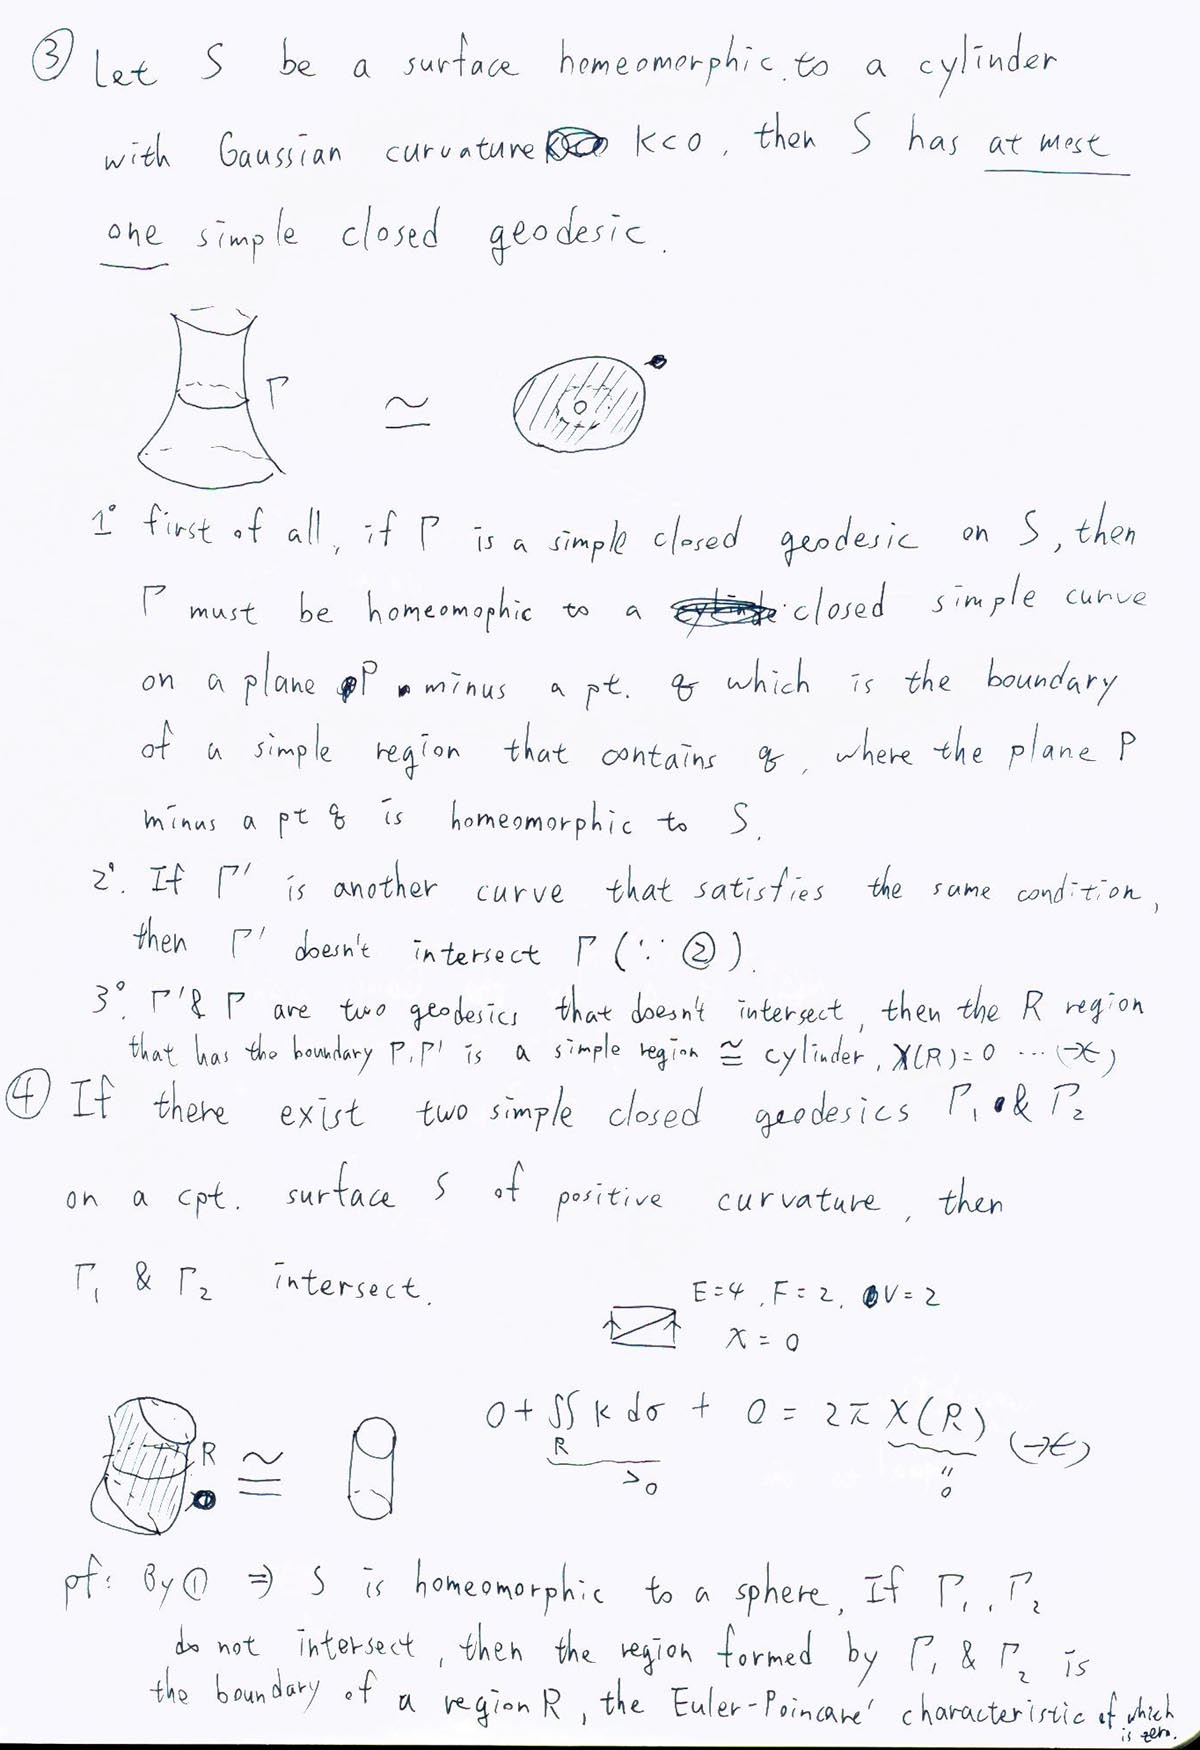 ③ Let S be a surface homeomorphic to a cylinder
with Gaussian curvature K<0, then S has at most
one simple closed geodesic.
Γ
≃
1° first of all, if Γ is a simple closed geodesic on S, then
Γ must be homeomophic to a closed simple curve
on a plane P minus a pt. q which is the boundary
of a simple region that contains q, where the plane P
minus a pt q is homeomorphic to S.
2°. If Γ' is another curve that satisfies the same condition,
then Γ' doesn't intersect Γ (∵ ②).
3°. Γ' & Γ are two geodesics that doesn't intersect, then the R region
that has the boundary Γ, Γ' is a simple region ≅ cylinder, χ(R)=0 ... (→←)
④ If there exist two simple closed geodesics Γ₁ & Γ₂
on a cpt. surface S of positive curvature, then
Γ₁ & Γ₂ intersect.
E=4, F=2, V=2
χ=0
0 + ∬ K dσ + 0 = 2π χ(R) (→←)
R
>0
"
0
R
≅
pf: By ① ⇒ S is homeomorphic to a sphere, If Γ₁, Γ₂
do not intersect, then the region formed by Γ₁ & Γ₂ is
the boundary of a region R, the Euler-Poincare' characteristic of which
is zero.